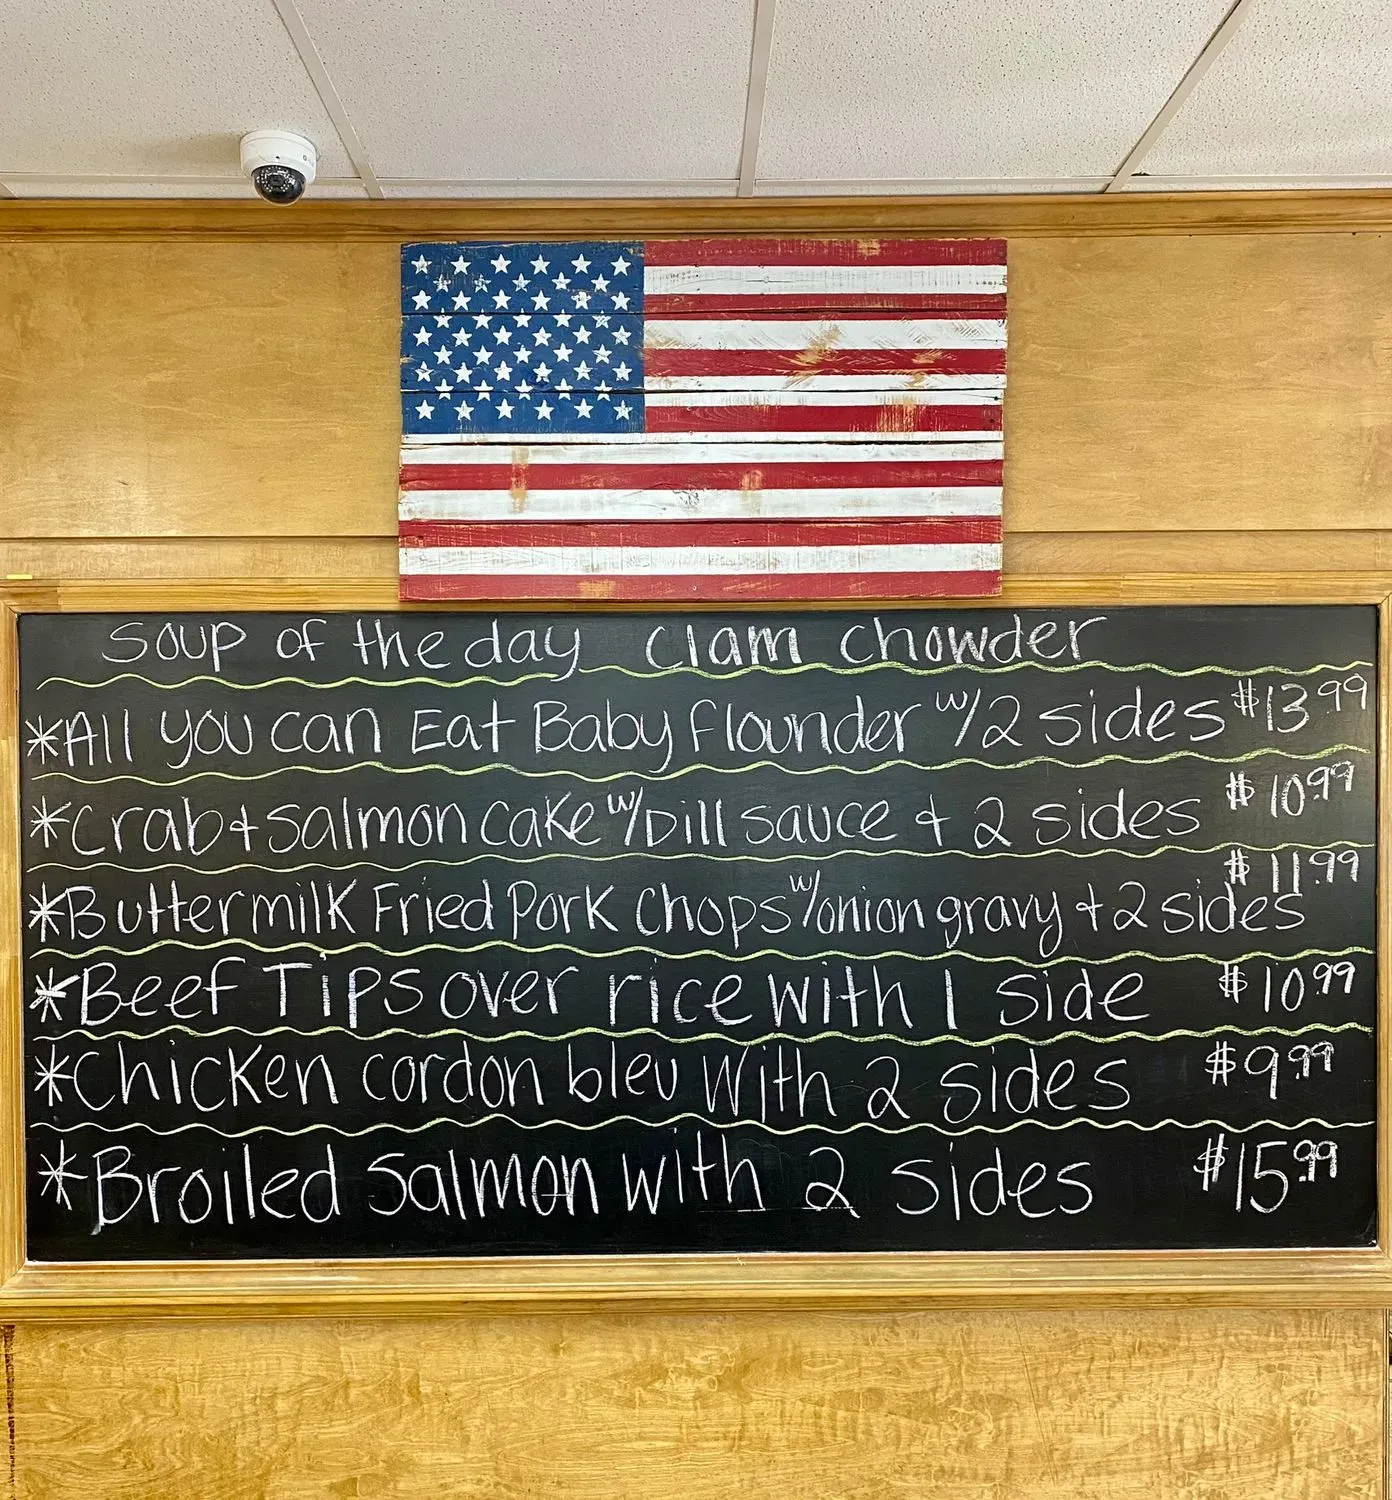 Soup of the day clam chowder
*All you can Eat Baby flounder w/2 sides $13.99
*Crab + salmon cake w/Dill sauce + 2 sides $10.99
*Buttermilk Fried Pork Chops w/onion gravy + 2 sides $11.99
*Beef Tips over rice with 1 side $10.99
*Chicken cordon bleu with 2 sides $9.99
*Broiled salmon with 2 sides $15.99